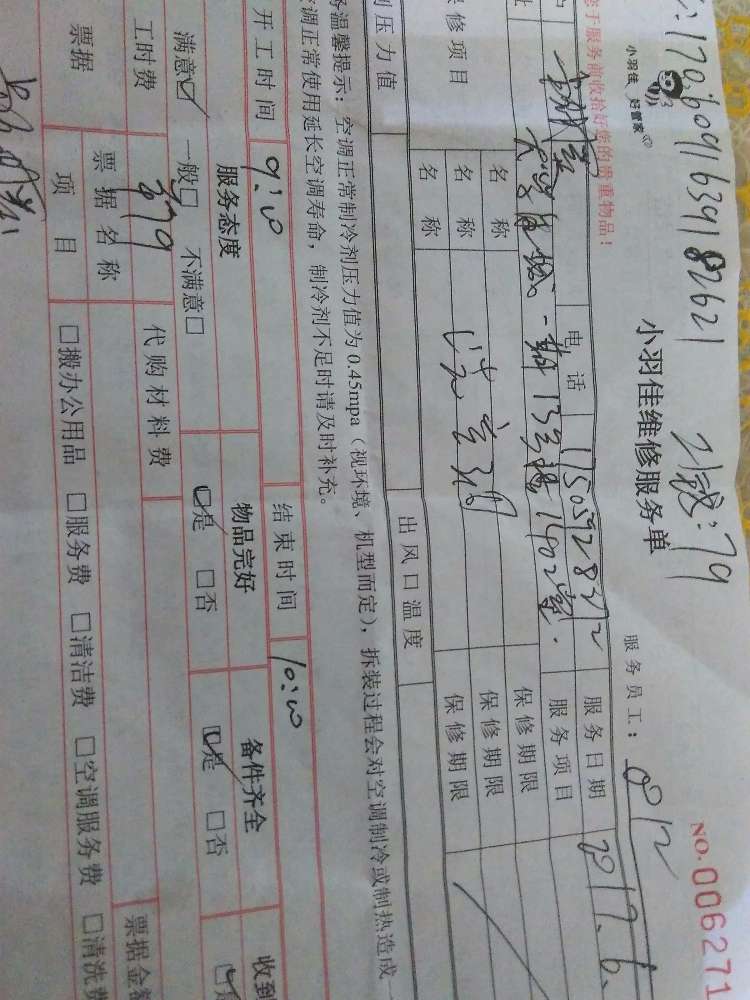 1706091639182621
小羽佳 好管家
小羽佳维修服务单
NO.006271
服务员工:012
您于服务前收拾好您的贵重物品!
电话 17505928372 服务日期 2017.6.
一期13号楼1402室. 服务项目
名称 保修期限
保修项目 名称 保修期限
名称 保修期限
压力值 出风口温度
温馨提示:空调正常制冷剂压力值为0.45mpa(视环境、机型而定),拆装过程会对空调制冷或制热造成
空调正常使用延长空调寿命,制冷剂不足时请及时补充。
开工时间 9:00 结束时间 10:00
服务态度 物品完好 备件齐全 收到
满意☑ 一般□ 不满意□ ☑是 □否 ☑是 □否
工时费 79 代购材料费
票据 票据名称 票据金额
项目 □搬办公用品 □服务费 □清洁费 □空调服务费 □清洗费